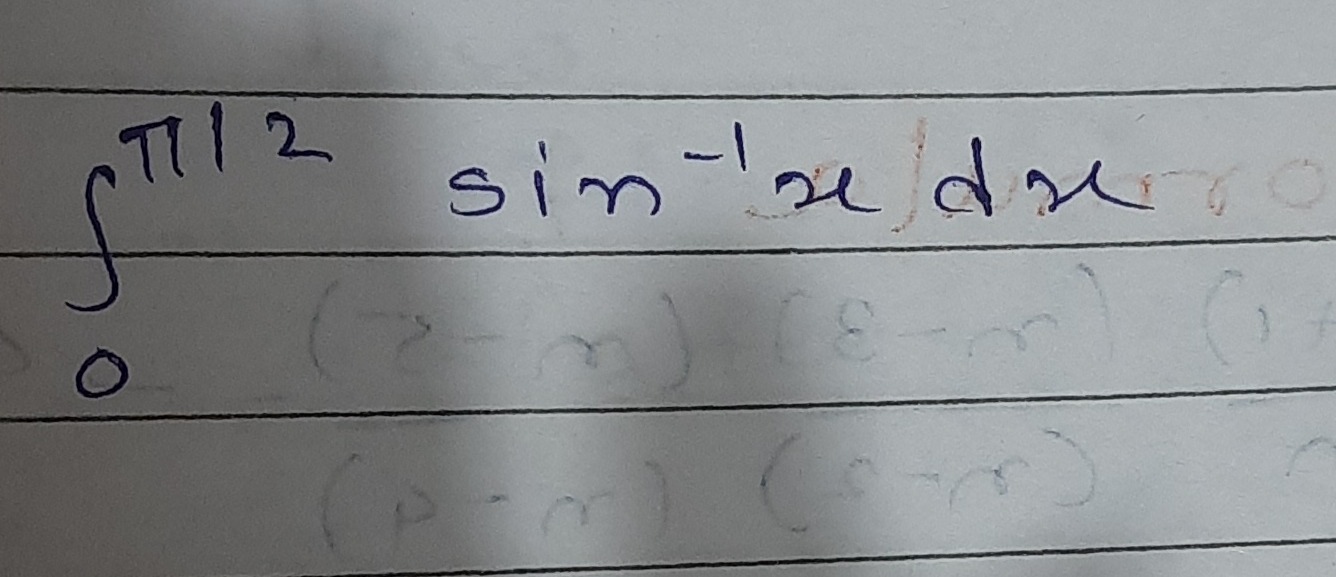 ∫₀^π/2 sin⁻¹x dx